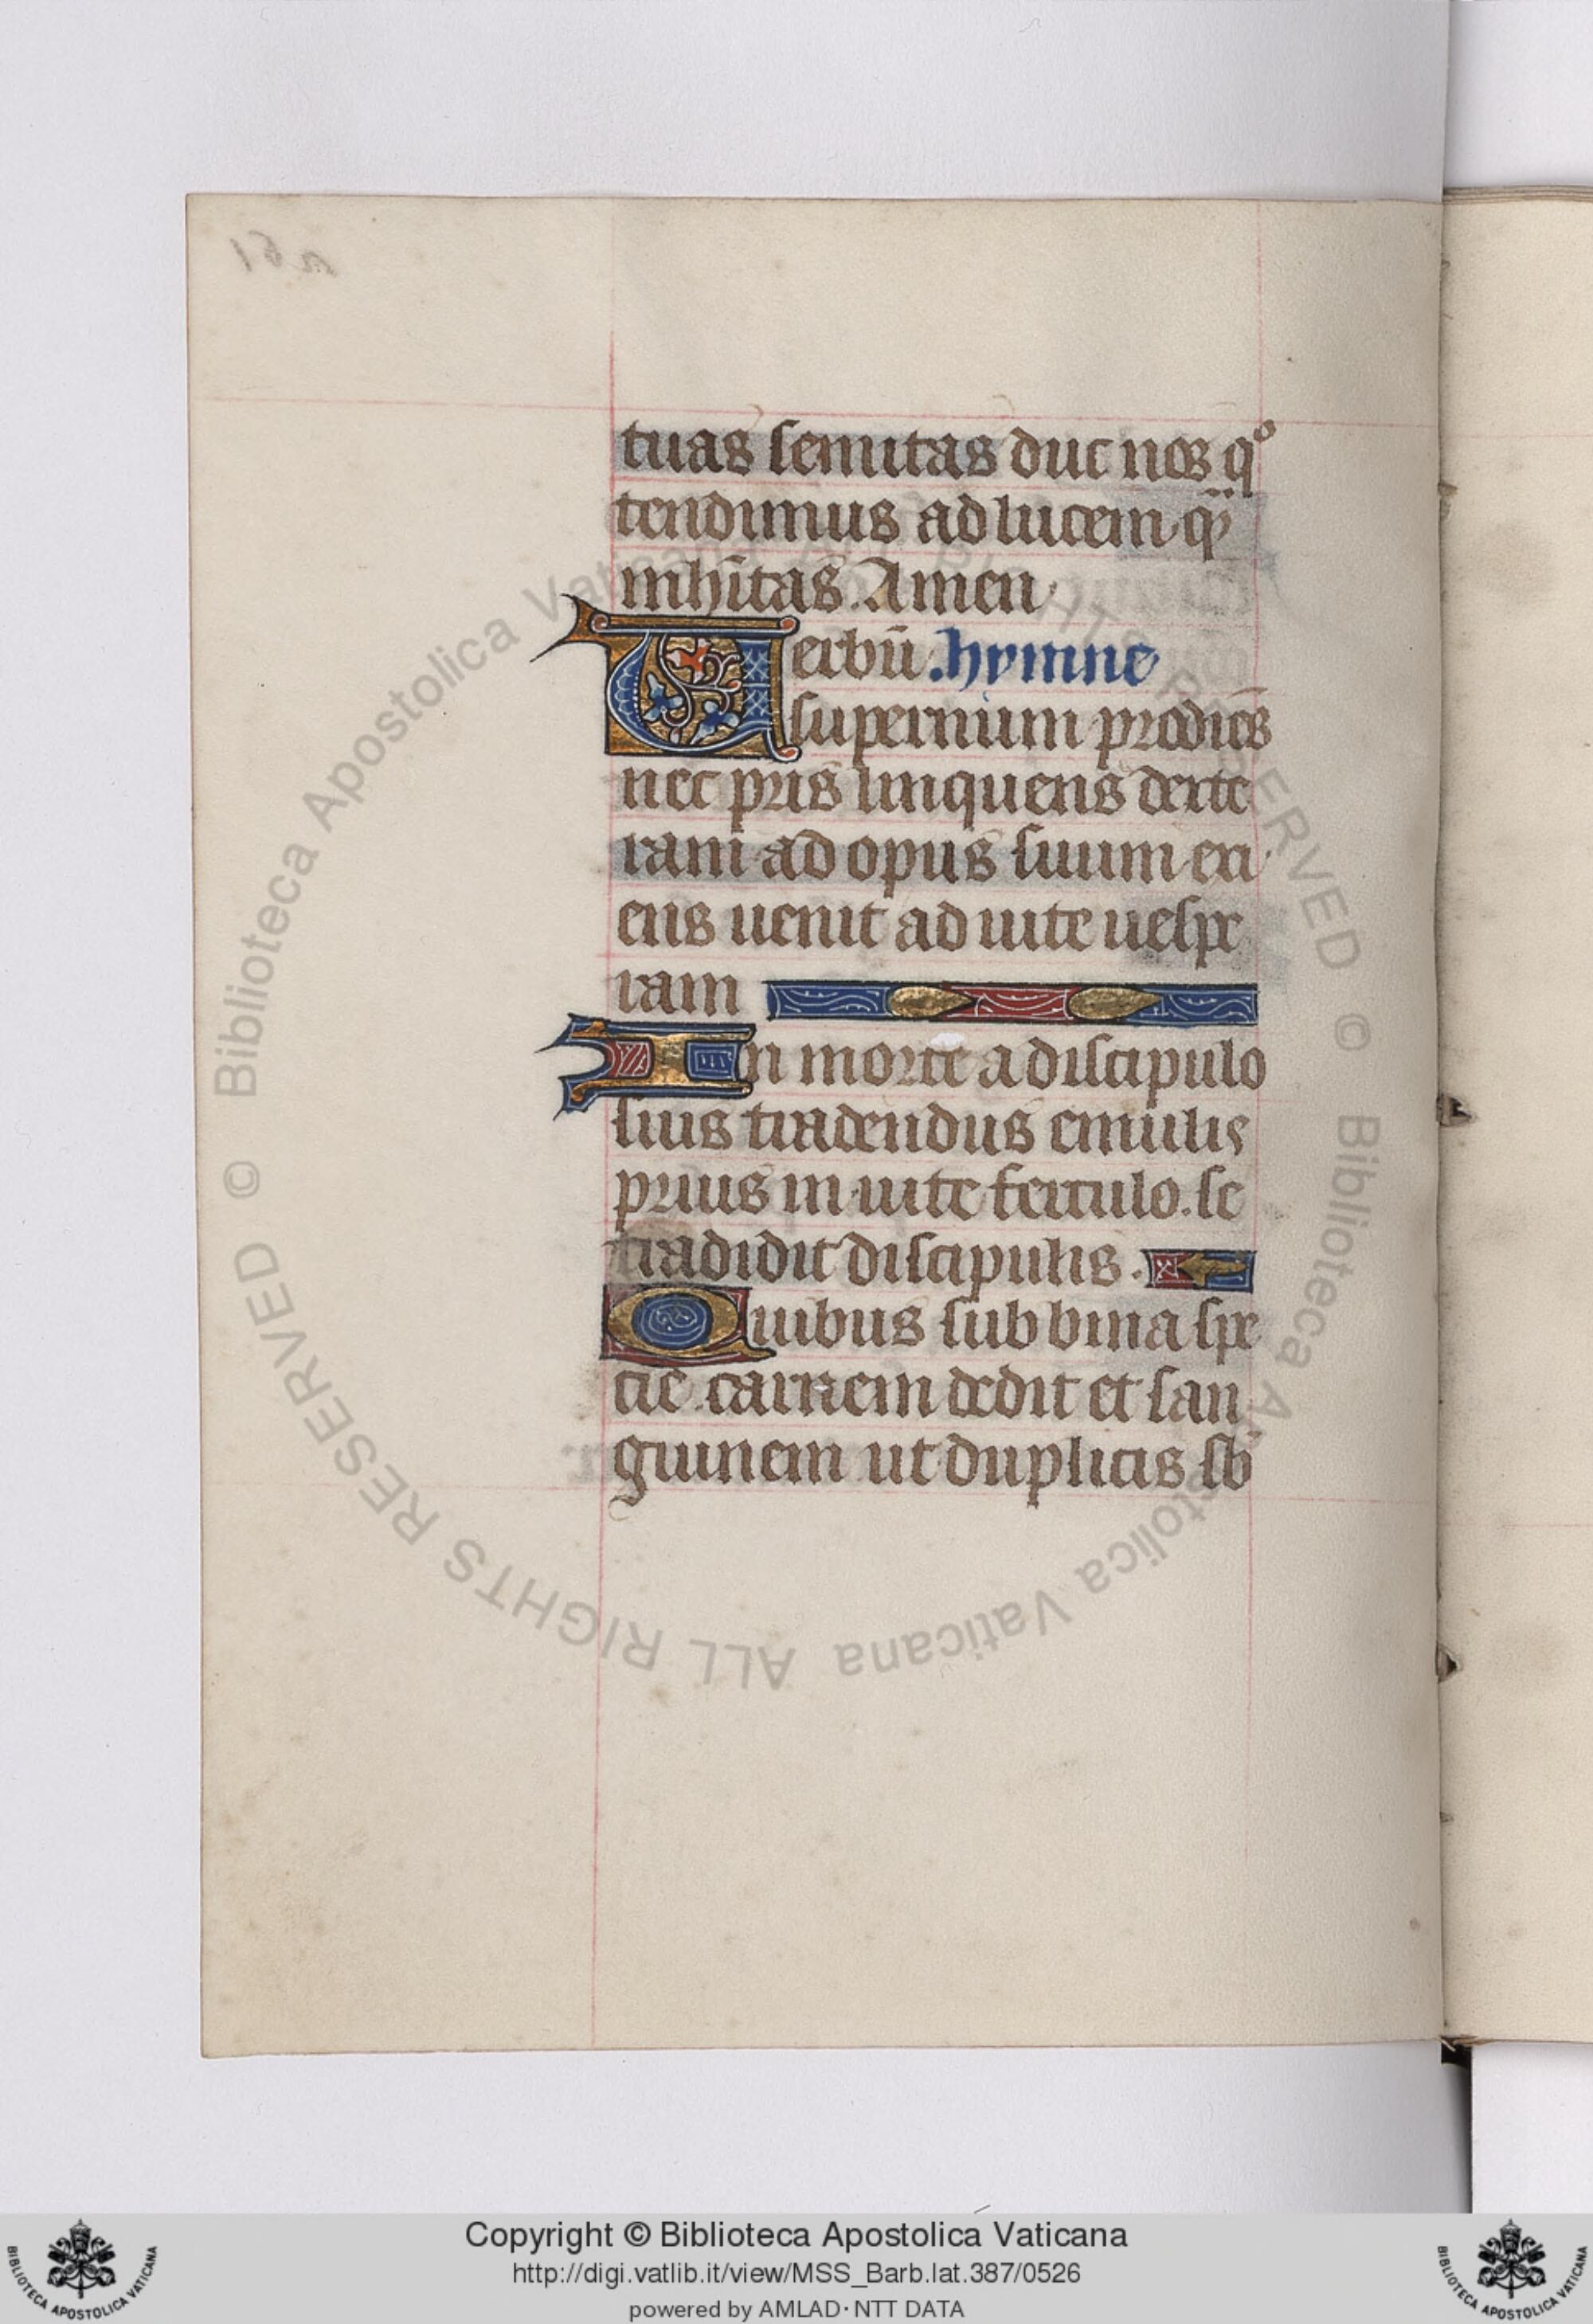 tuas semitas duc nos qº
tendimus ad lucem q̈̃
inhītas. Amen
Uerbū .hymne
supernum prodiēs
nec pr̄is linquens dexte
ram ad opus suum exi
ens uenit ad uite uespe
ram
In morte a discipulo
suus tradendus emulis
prius in uite ferculo. se
tradidit discipulis.
Quibus sub bina spe
cie carnem dedit et san
guinem ut duplicis sb̄
© Biblioteca Apostolica Vaticana ALL RIGHTS RESERVED © Biblioteca Apostolica Vaticana ALL RIGHTS RESERVED
Copyright © Biblioteca Apostolica Vaticana
http://digi.vatlib.it/view/MSS_Barb.lat.387/0526
powered by AMLAD·NTT DATA
BIBLIOTECA APOSTOLICA VATICANA
BIBLIOTECA APOSTOLICA VATICANA